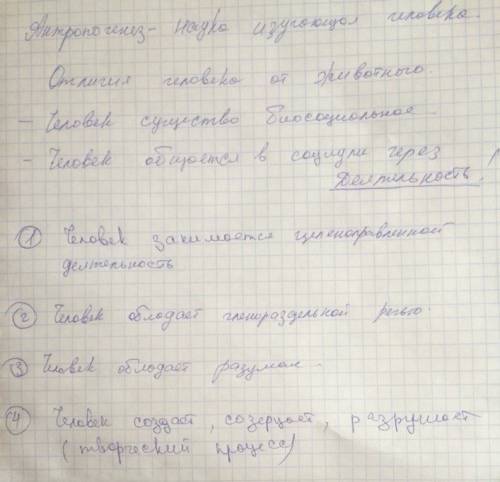 Антропогенез - наука изучающая человека.
Отличия человека от животного.
- Человек существо биосоциальное.
- Человек общается в социуме через
деятельность!
① Человек занимается целенаправленной
деятельность
② Человек обладает членораздельной речью.
③ Человек обладает разумом.
④ Человек создает, созерцает, разрушает
(творческий процесс)